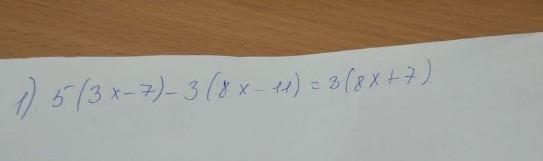 1) 5(3x-7)-3(8x-11)=3(8x+7).